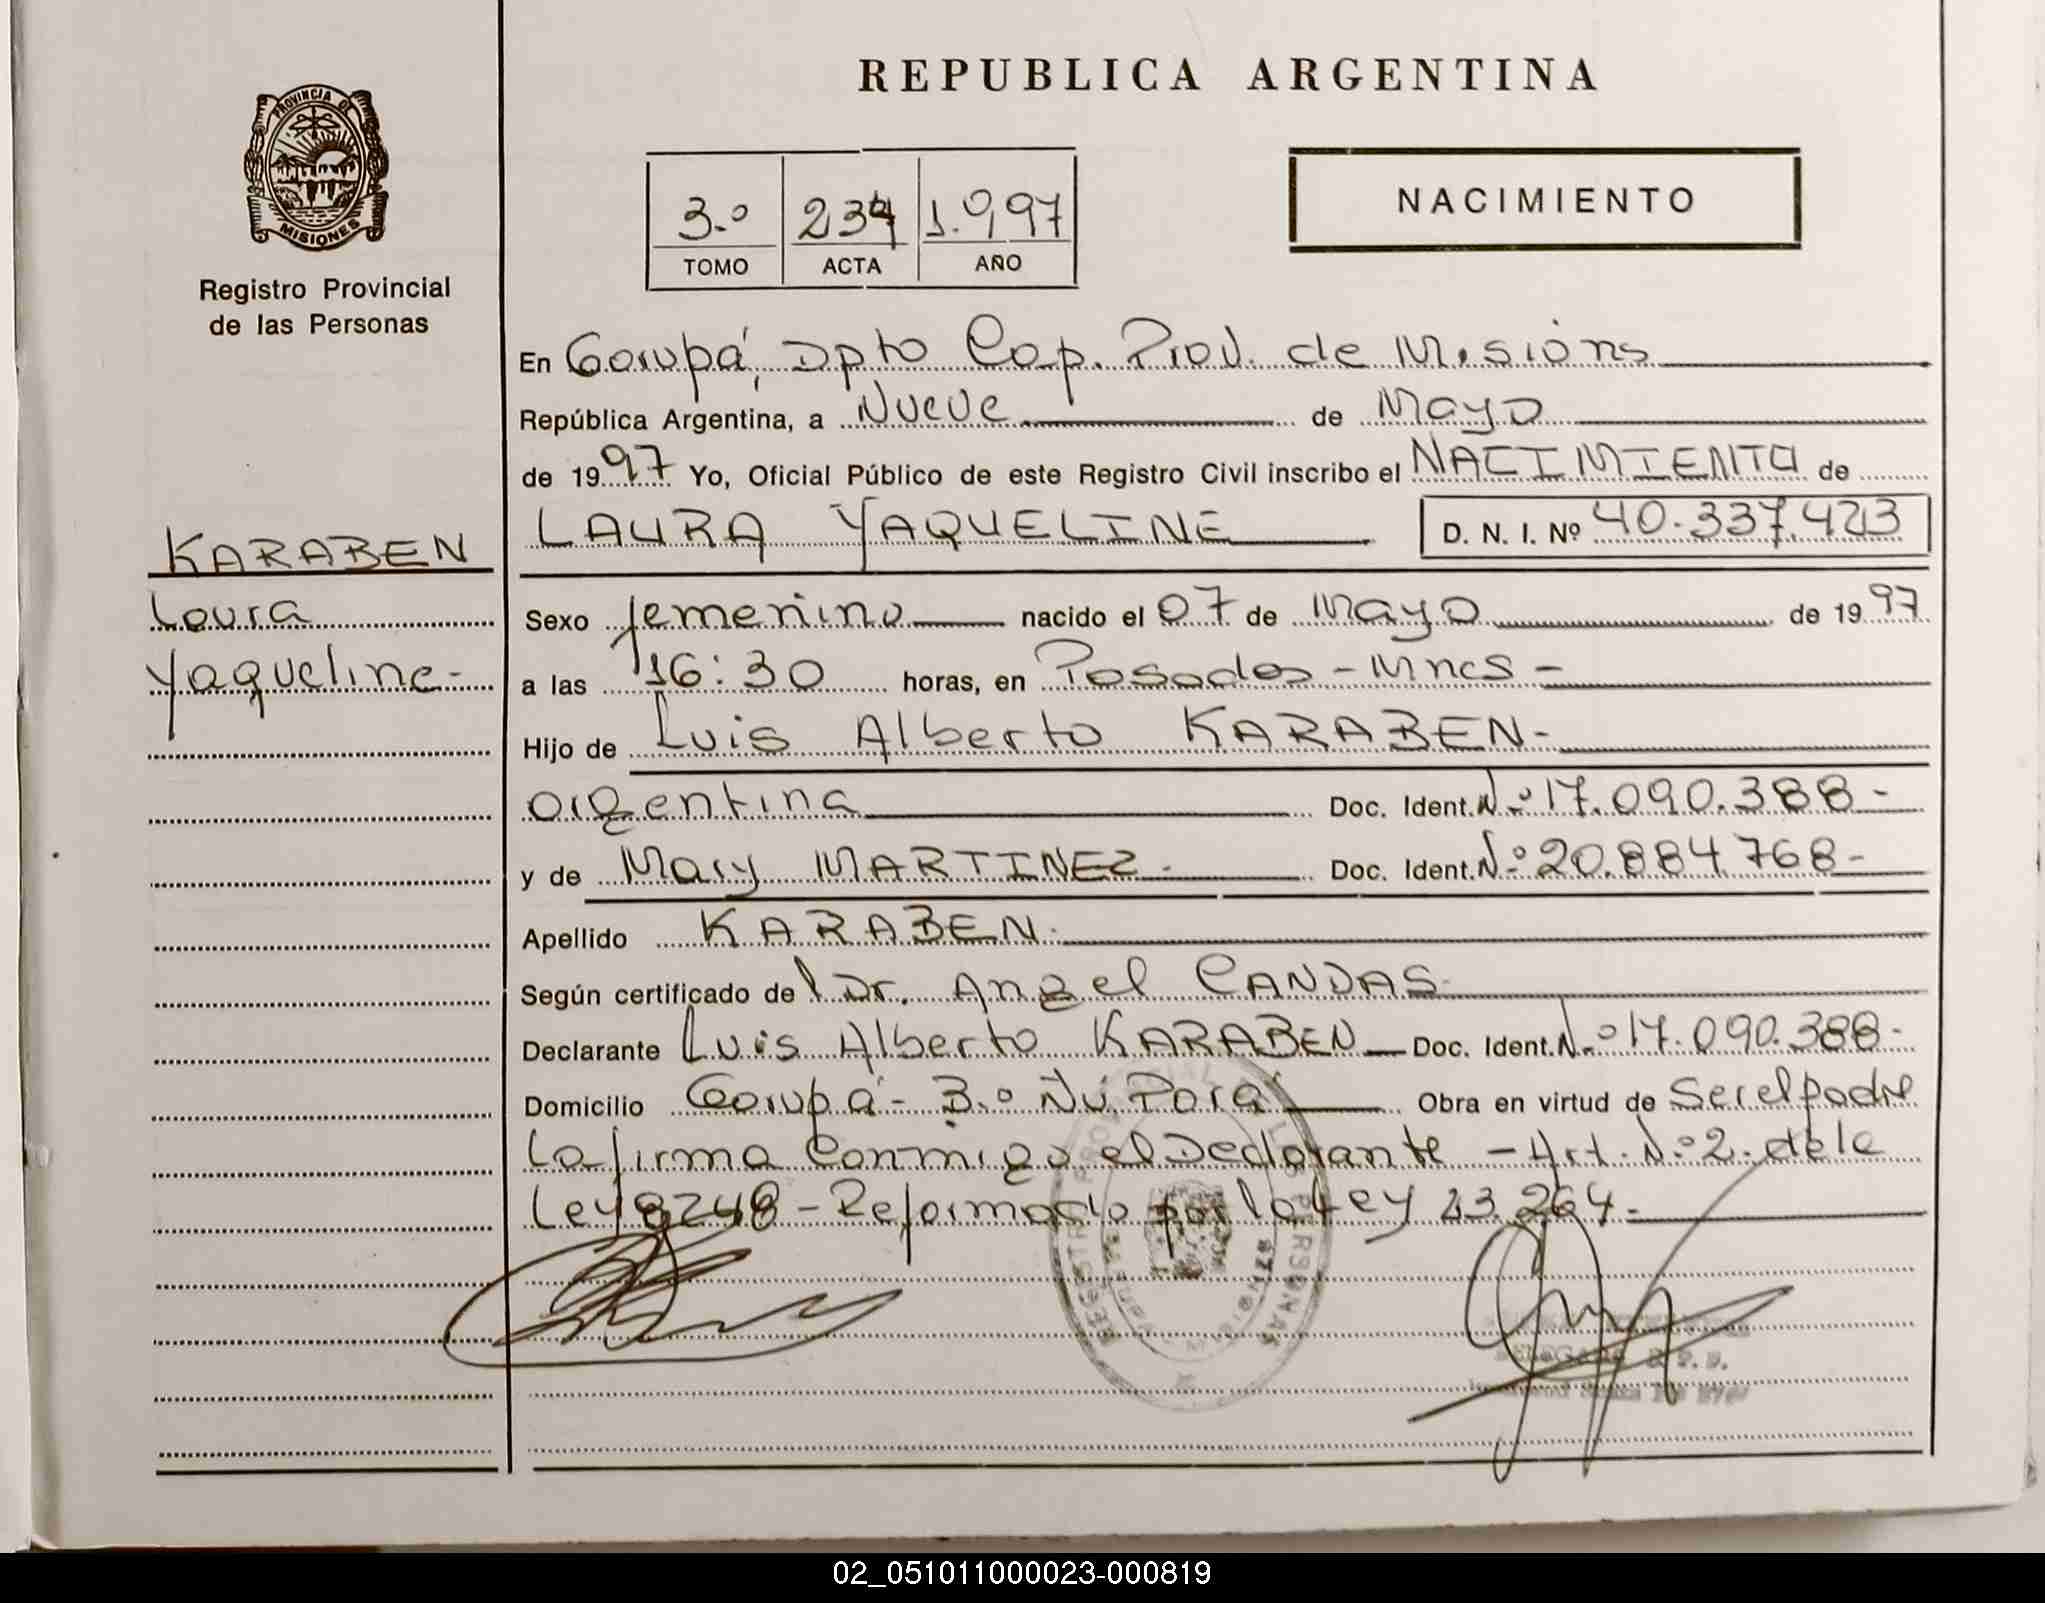 REPUBLICA ARGENTINA
PROVINCIA DE
MISIONES
Registro Provincial
de las Personas
3.º 234 1.997
TOMO ACTA AÑO
NACIMIENTO
En Garupá, Dpto Cap. Prov. de Misions
República Argentina, a Nueve de Mayo
de 1997 Yo, Oficial Público de este Registro Civil inscribo el NACIMIENTO de
KARABEN
LAURA YAQUELINE D. N. I. Nº 40.337.423
Laura
Yaqueline-
Sexo femenino nacido el 07 de Mayo de 1997
a las 16:30 horas, en Posadas - Mnes -
Hijo de Luis Alberto KARABEN-
argentina Doc. Ident. N.º 17.090.388-
y de Mary MARTINEZ.- Doc. Ident. N.º 20.884.768-
Apellido KARABEN.
Según certificado de l Dr. Angel CANDAS.
Declarante Luis Alberto KARABEN Doc. Ident. N.º 17.090.388-
Domicilio Garupá - B.º Ñu Porá Obra en virtud de Ser el padre
La firma Conmigo el Declarante - Art. N.º 2. de la
Ley 8248 - Reformado por la Ley 23.264.-
REGISTRO PROVINCIAL PERSONAS
MISIONES
02_051011000023-000819